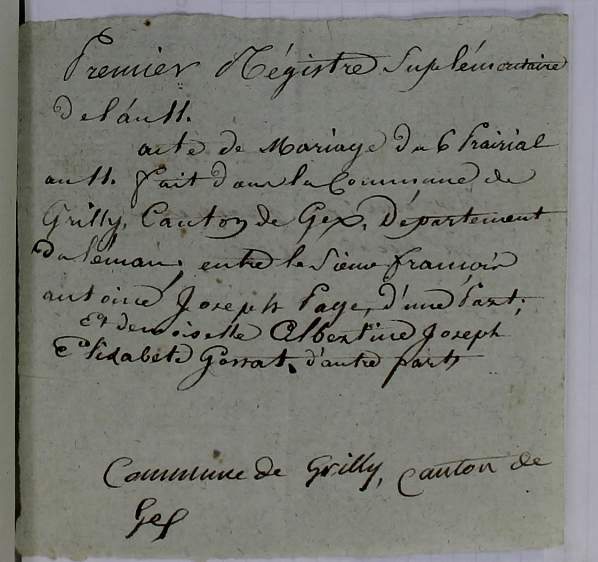 Premier Régistre Suplémentaire
De l'an 11.
acte de Mariage Du 6 Prairial
an 11. fait dans la Commune de
Grilly, Canton de Gex, Département
Du leman, entre le Sieur françois
antoine Joseph Page, d'une Part;
Et demoiselle Albertine Joseph
Elizabete Gorrat, d'autre part
Commune de Grilly, canton de
Gex